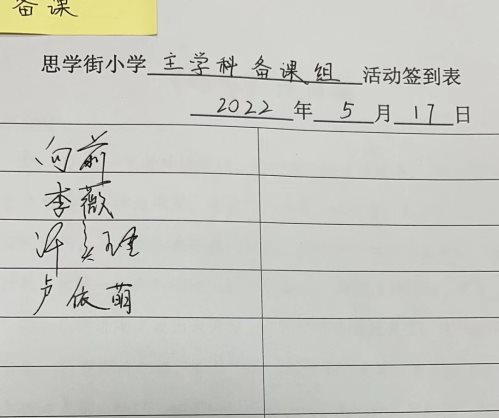 备课
思学街小学主学科备课组活动签到表
2022年5月17日
向前
李薇
卢依萌